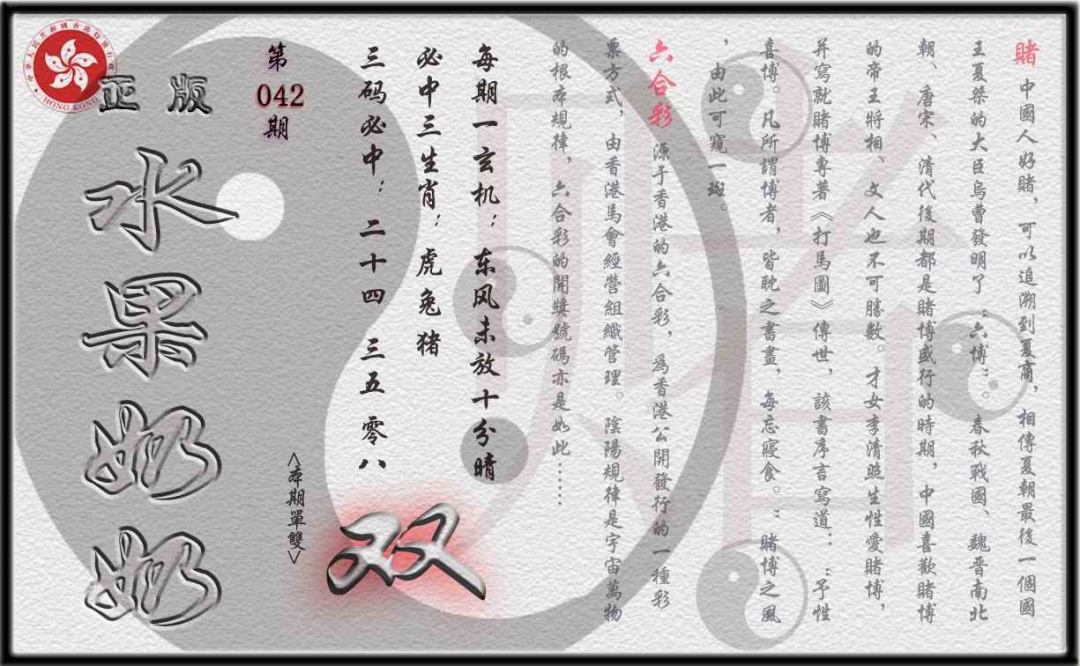 賭 中國人好賭，可以追溯到夏商，相傳夏朝最後一個國
王夏桀的大臣烏曹發明了“六博”。春秋戰國、魏晉南北
朝、唐宋、清代後期都是賭博盛行的時期，中國喜歡賭博
的帝王將相、文人也不可勝數。才女李清照生性愛賭博，
并寫就賭博專著《打馬圖》傳世，該書序言寫道：“予性
喜博。凡所謂博者，皆耽之書畫，每忘寢食。”賭博之風
，由此可窺一斑。
六合彩 源于香港的六合彩，為香港公開發行的一種彩
票方式，由香港馬會經營組織管理。陰陽規律是宇宙萬物
的根本規律，六合彩的開獎號碼亦是如此……
每期一玄机：东风未放十分晴
必中三生肖：虎兔猪
三码必中：二十四 三五 零八
双
<本期單雙>
第
042
期
正版
水果奶奶
HONG KONG